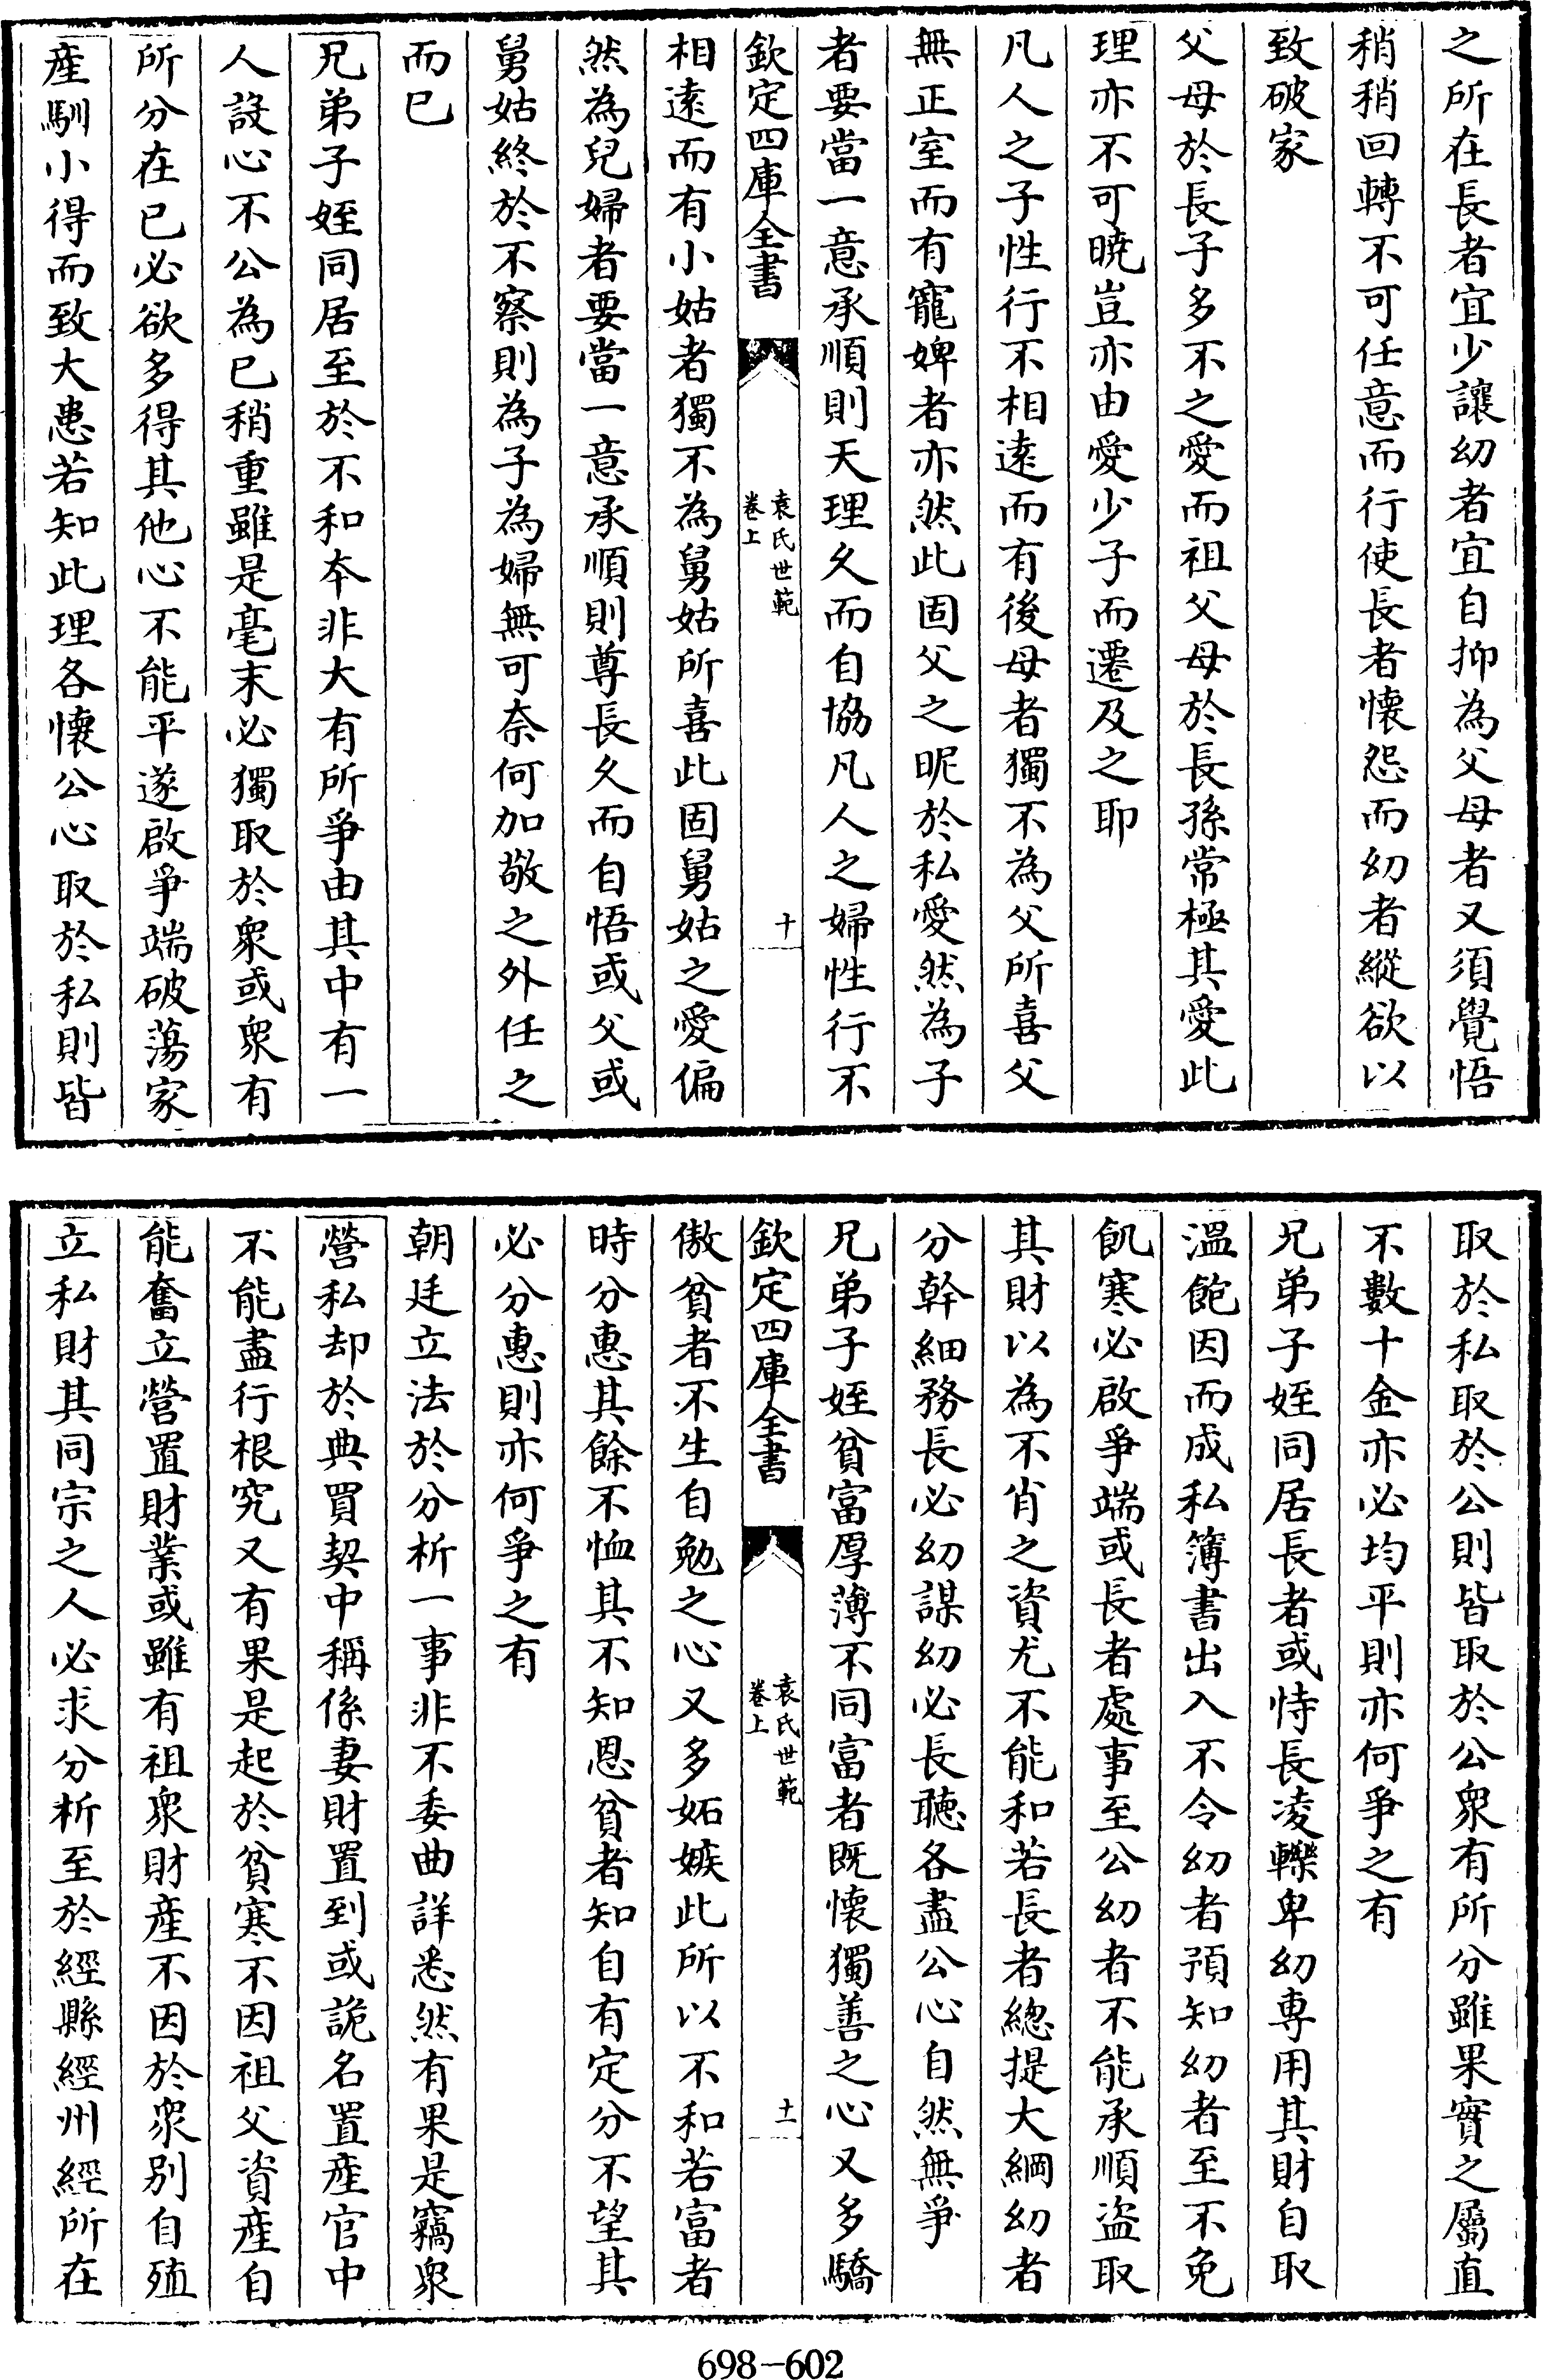 之所在長者宜少讓幼者宜自抑為父母者又須覺悟
稍稍回轉不可任意而行使長者懷怨而幼者縱欲以
致破家
父母於長子多不之愛而祖父母於長孫常極其愛此
理亦不可曉豈亦由愛少子而遷及之耶
凡人之子性行不相遠而有後母者獨不為父所喜父
無正室而有寵婢者亦然此固父之昵於私愛然為子
者要當一意承順則天理久而自協凡人之婦性行不
欽定四庫全書
袁氏世範
卷上
十
相遠而有小姑者獨不為舅姑所喜此固舅姑之愛偏
然為兒婦者要當一意承順則尊長久而自悟或父或
舅姑終於不察則為子為婦無可奈何加敬之外任之
而已
兄弟子姪同居至於不和本非大有所爭由其中有一
人設心不公為已稍重雖是毫末必獨取於衆或衆有
所分在已必欲多得其他心不能平遂啟爭端破蕩家
產馴小得而致大患若知此理各懷公心取於私則皆
取於私取於公則皆取於公衆有所分雖果實之屬直
不數十金亦必均平則亦何爭之有
兄弟子姪同居長者或恃長凌轢卑幼專用其財自取
溫飽因而成私簿書出入不令幼者預知幼者至不免
飢寒必啟爭端或長者處事至公幼者不能承順盜取
其財以為不肖之資尤不能和若長者總提大綱幼者
分幹細務長必幼謀幼必長聽各盡公心自然無爭
兄弟子姪貧富厚薄不同富者既懷獨善之心又多驕
欽定四庫全書
袁氏世範
卷上
十一
傲貧者不生自勉之心又多妬嫉此所以不和若富者
時分惠其餘不恤其不知恩貧者知自有定分不望其
必分惠則亦何爭之有
朝廷立法於分析一事非不委曲詳悉然有果是竊衆
營私却於典買契中稱係妻財置到或詭名置產官中
不能盡行根究又有果是起於貧寒不因祖父資產自
能奮立營置財業或雖有祖衆財產不因於衆別自殖
立私財其同宗之人必求分析至於經縣經州經所在
698-602